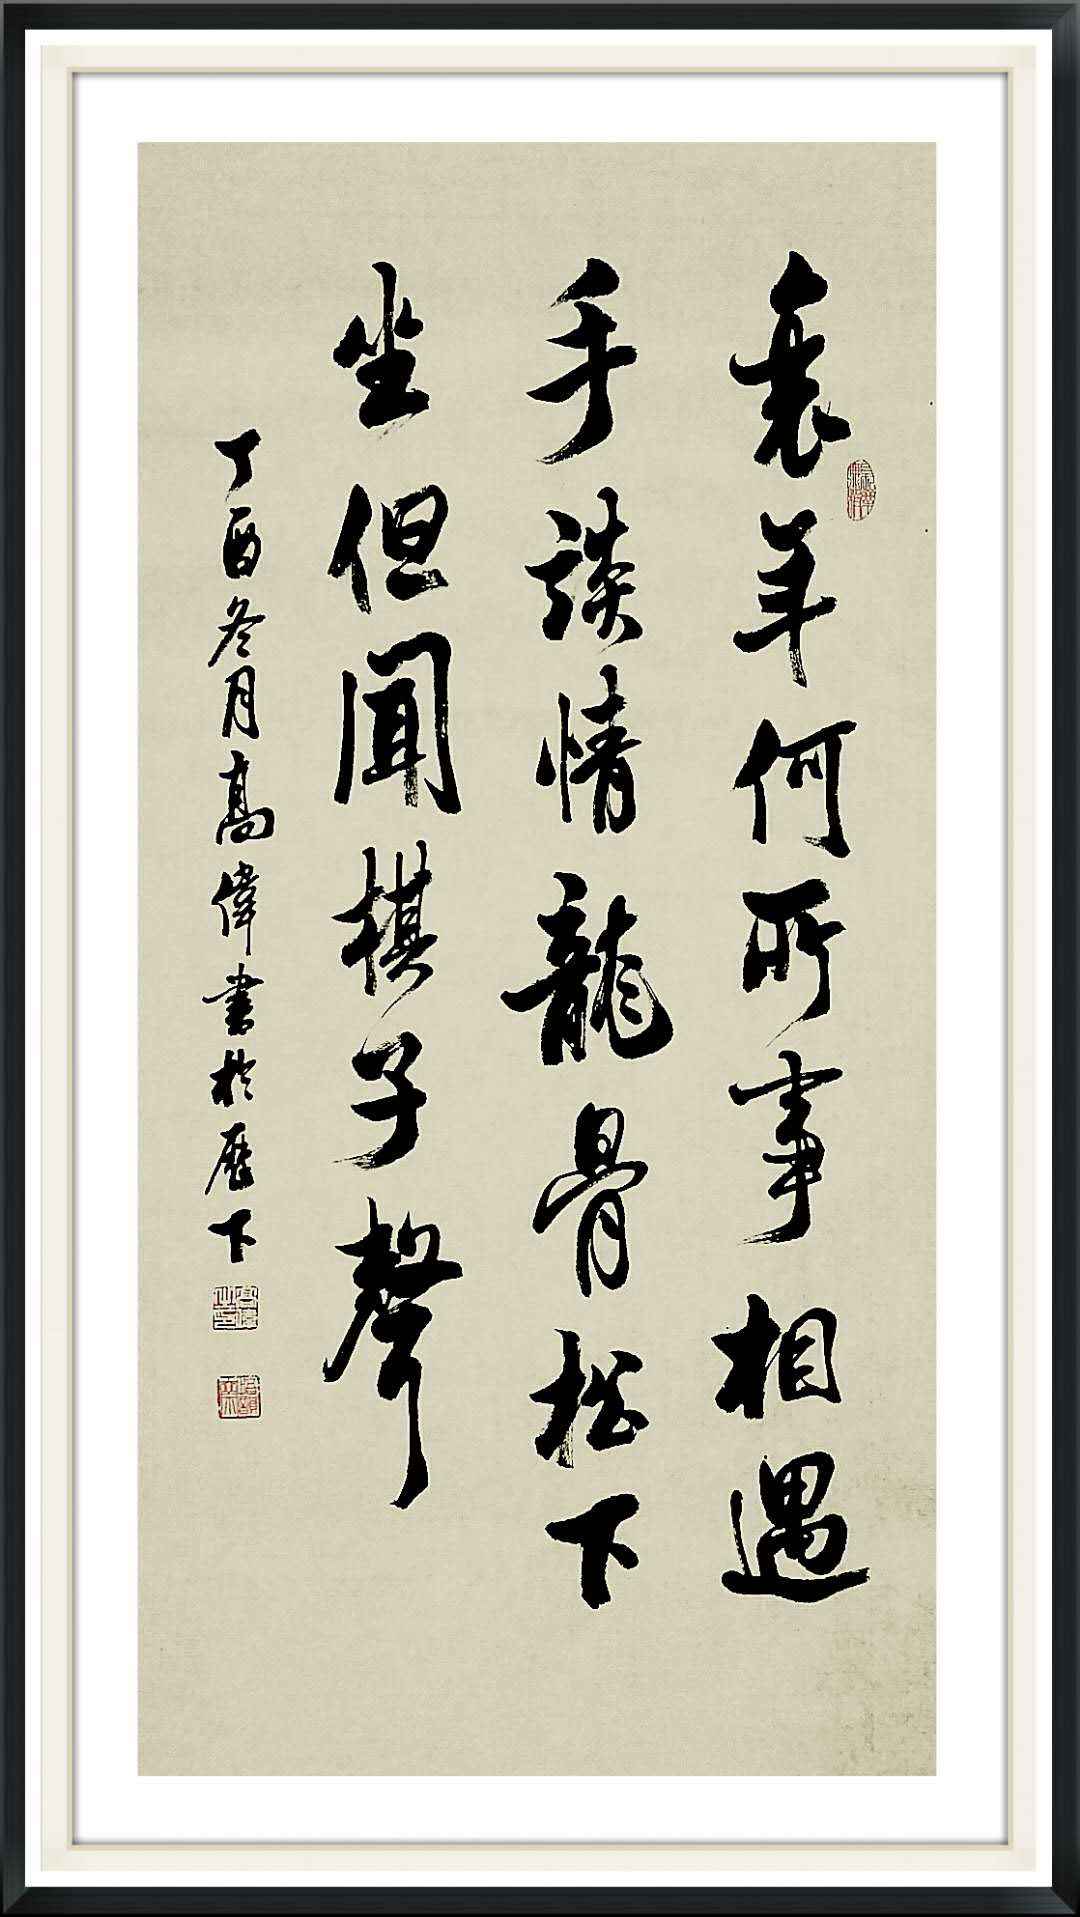 衰年何所事相遇
手談情龍骨松下
坐但聞棋子聲
丁酉冬月高偉書於歷下